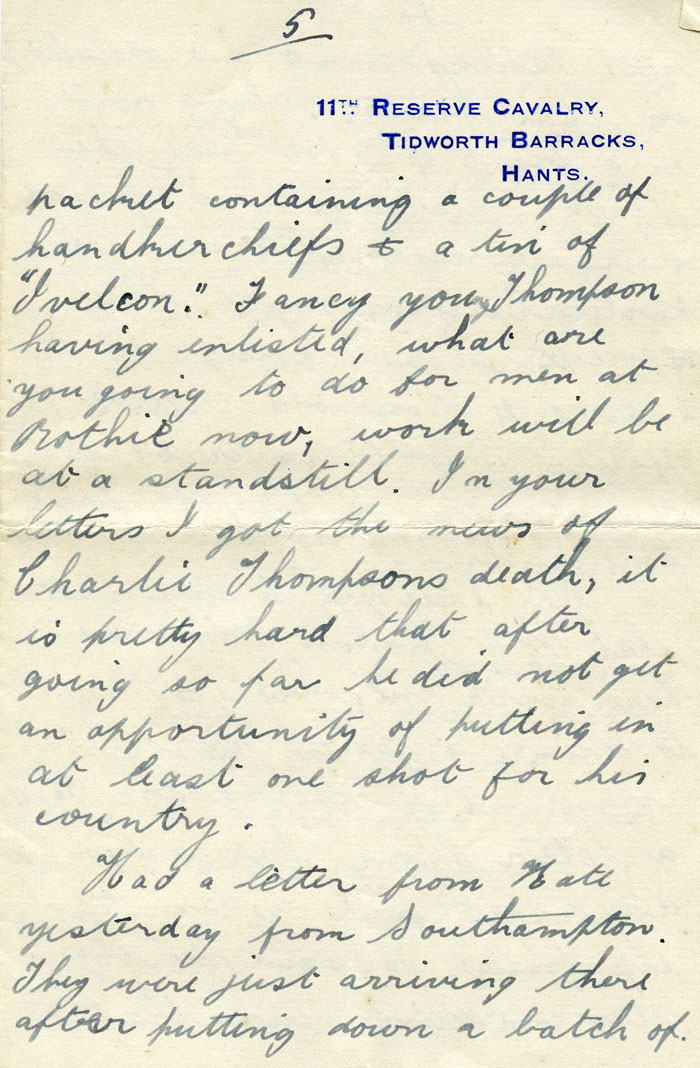 5
11TH RESERVE CAVALRY,
TIDWORTH BARRACKS,
HANTS.
packet containing a couple of
handkerchiefs & a tin of
"Ivelcon." Fancy young Thompson
having enlisted, what are
you going to do for men at
Rothie now, work will be
at a standstill. In your
letters I got the news of
Charlie Thompsons death, it
is pretty hard that after
going so far he did not get
an opportunity of putting in
at least one shot for his
country.
Had a letter from Kate
yesterday from Southampton.
They were just arriving there
after putting down a batch of.